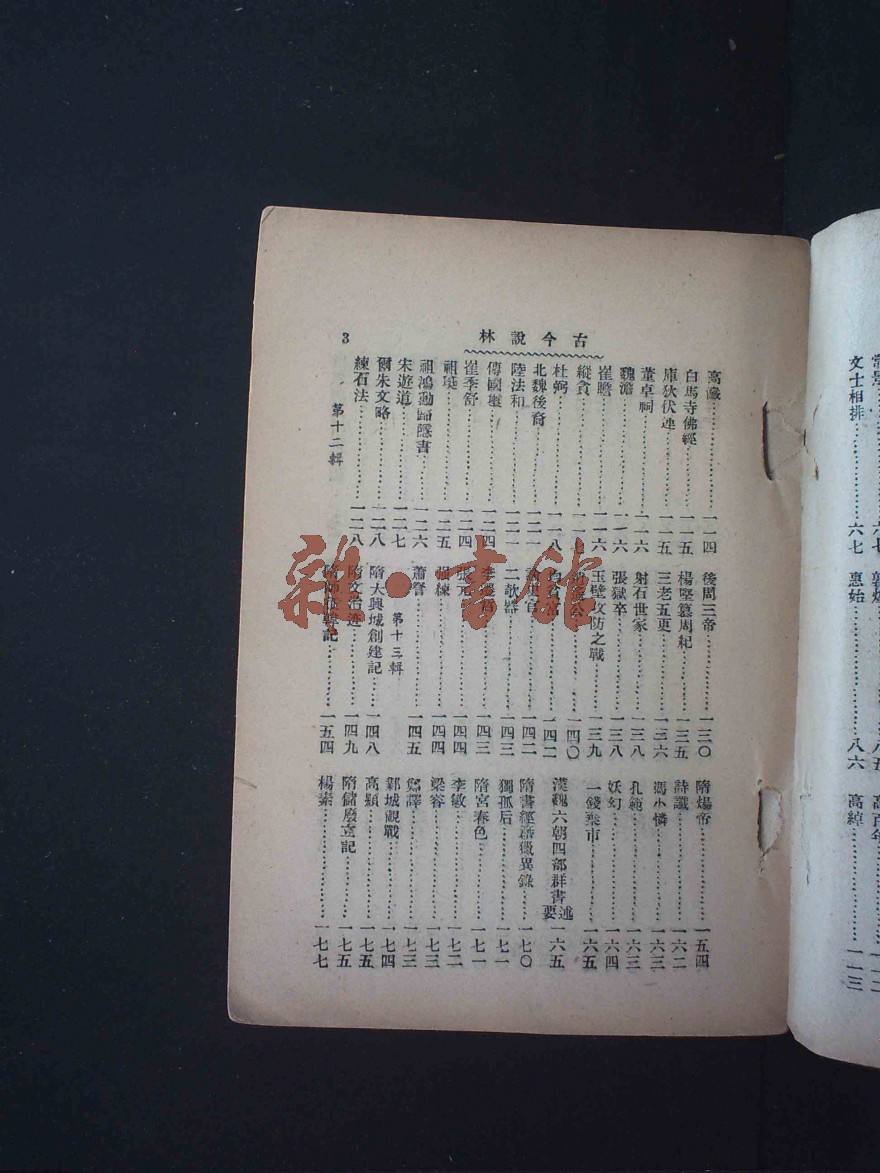 古今說林
3
高歡⋯⋯一一四
白馬寺佛經⋯⋯一一五
庫狄伏連⋯⋯一一五
董卓祠⋯⋯一一六
魏澹⋯⋯一一六
崔瞻⋯⋯一一六
縱貪⋯⋯一一七
杜弼⋯⋯一一八
北魏後裔⋯⋯一二一
陸法和⋯⋯一二一
傳國璽⋯⋯一二四
崔季舒⋯⋯一二四
祖珽⋯⋯一二五
祖鴻勳歸隱書⋯⋯一二六
宋遊道⋯⋯一二七
爾朱文略⋯⋯一二八
練石法⋯⋯一二八
第十二輯
後周三帝⋯⋯一三〇
楊堅簒周紀⋯⋯一三五
三老五更⋯⋯一三六
射石世家⋯⋯一三八
張獄卒⋯⋯一三八
玉壁攻防之戰⋯⋯一三九
⋯⋯一四〇
⋯⋯一四二
⋯⋯一四二
二欹器⋯⋯一四三
⋯⋯一四三
張元⋯⋯一四四
強練⋯⋯一四四
蕭詧⋯⋯一四五
第十三輯
隋大興城創建記⋯⋯一四八
隋文治迹⋯⋯一四九
⋯⋯一五四
隋煬帝⋯⋯一五四
詩讖⋯⋯一六二
馮小憐⋯⋯一六三
孔範⋯⋯一六三
妖幻⋯⋯一六四
一錢棄市⋯⋯一六五
漢魏六朝四部群書述要一六五
隋書經籍徵異錄⋯⋯一七〇
獨孤后⋯⋯一七一
隋宮春色⋯⋯一七一
李敏⋯⋯一七二
梁睿⋯⋯一七三
鄭譯⋯⋯一七三
鄴城觀戰⋯⋯一七四
高熲⋯⋯一七五
隋儲廢立記⋯⋯一七五
楊素⋯⋯一七七
文士相排⋯⋯六七
惠始⋯⋯八六
高綽⋯⋯一一三
新·書舘